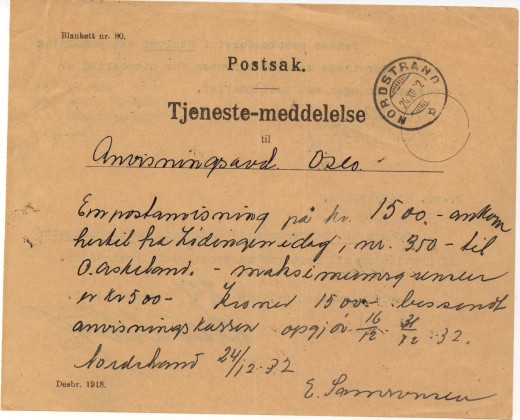 Blankett nr. 80.
Postsak.
Tjeneste-meddelelse
til
Anvisningsavd. Oslo.
En postanvisning på kr. 1500.- ankom
hertil fra Lødingen idag, nr. 350 - til
O. Askeland. - maksimumsgrensen
er kr 500- Kroner 1500.- bessendt
anvisningskassen opgjør 16/12 - 31/12 - 32.
Nordstrand 24/12-32
E.
Desbr. 1918.
NORDSTRAND